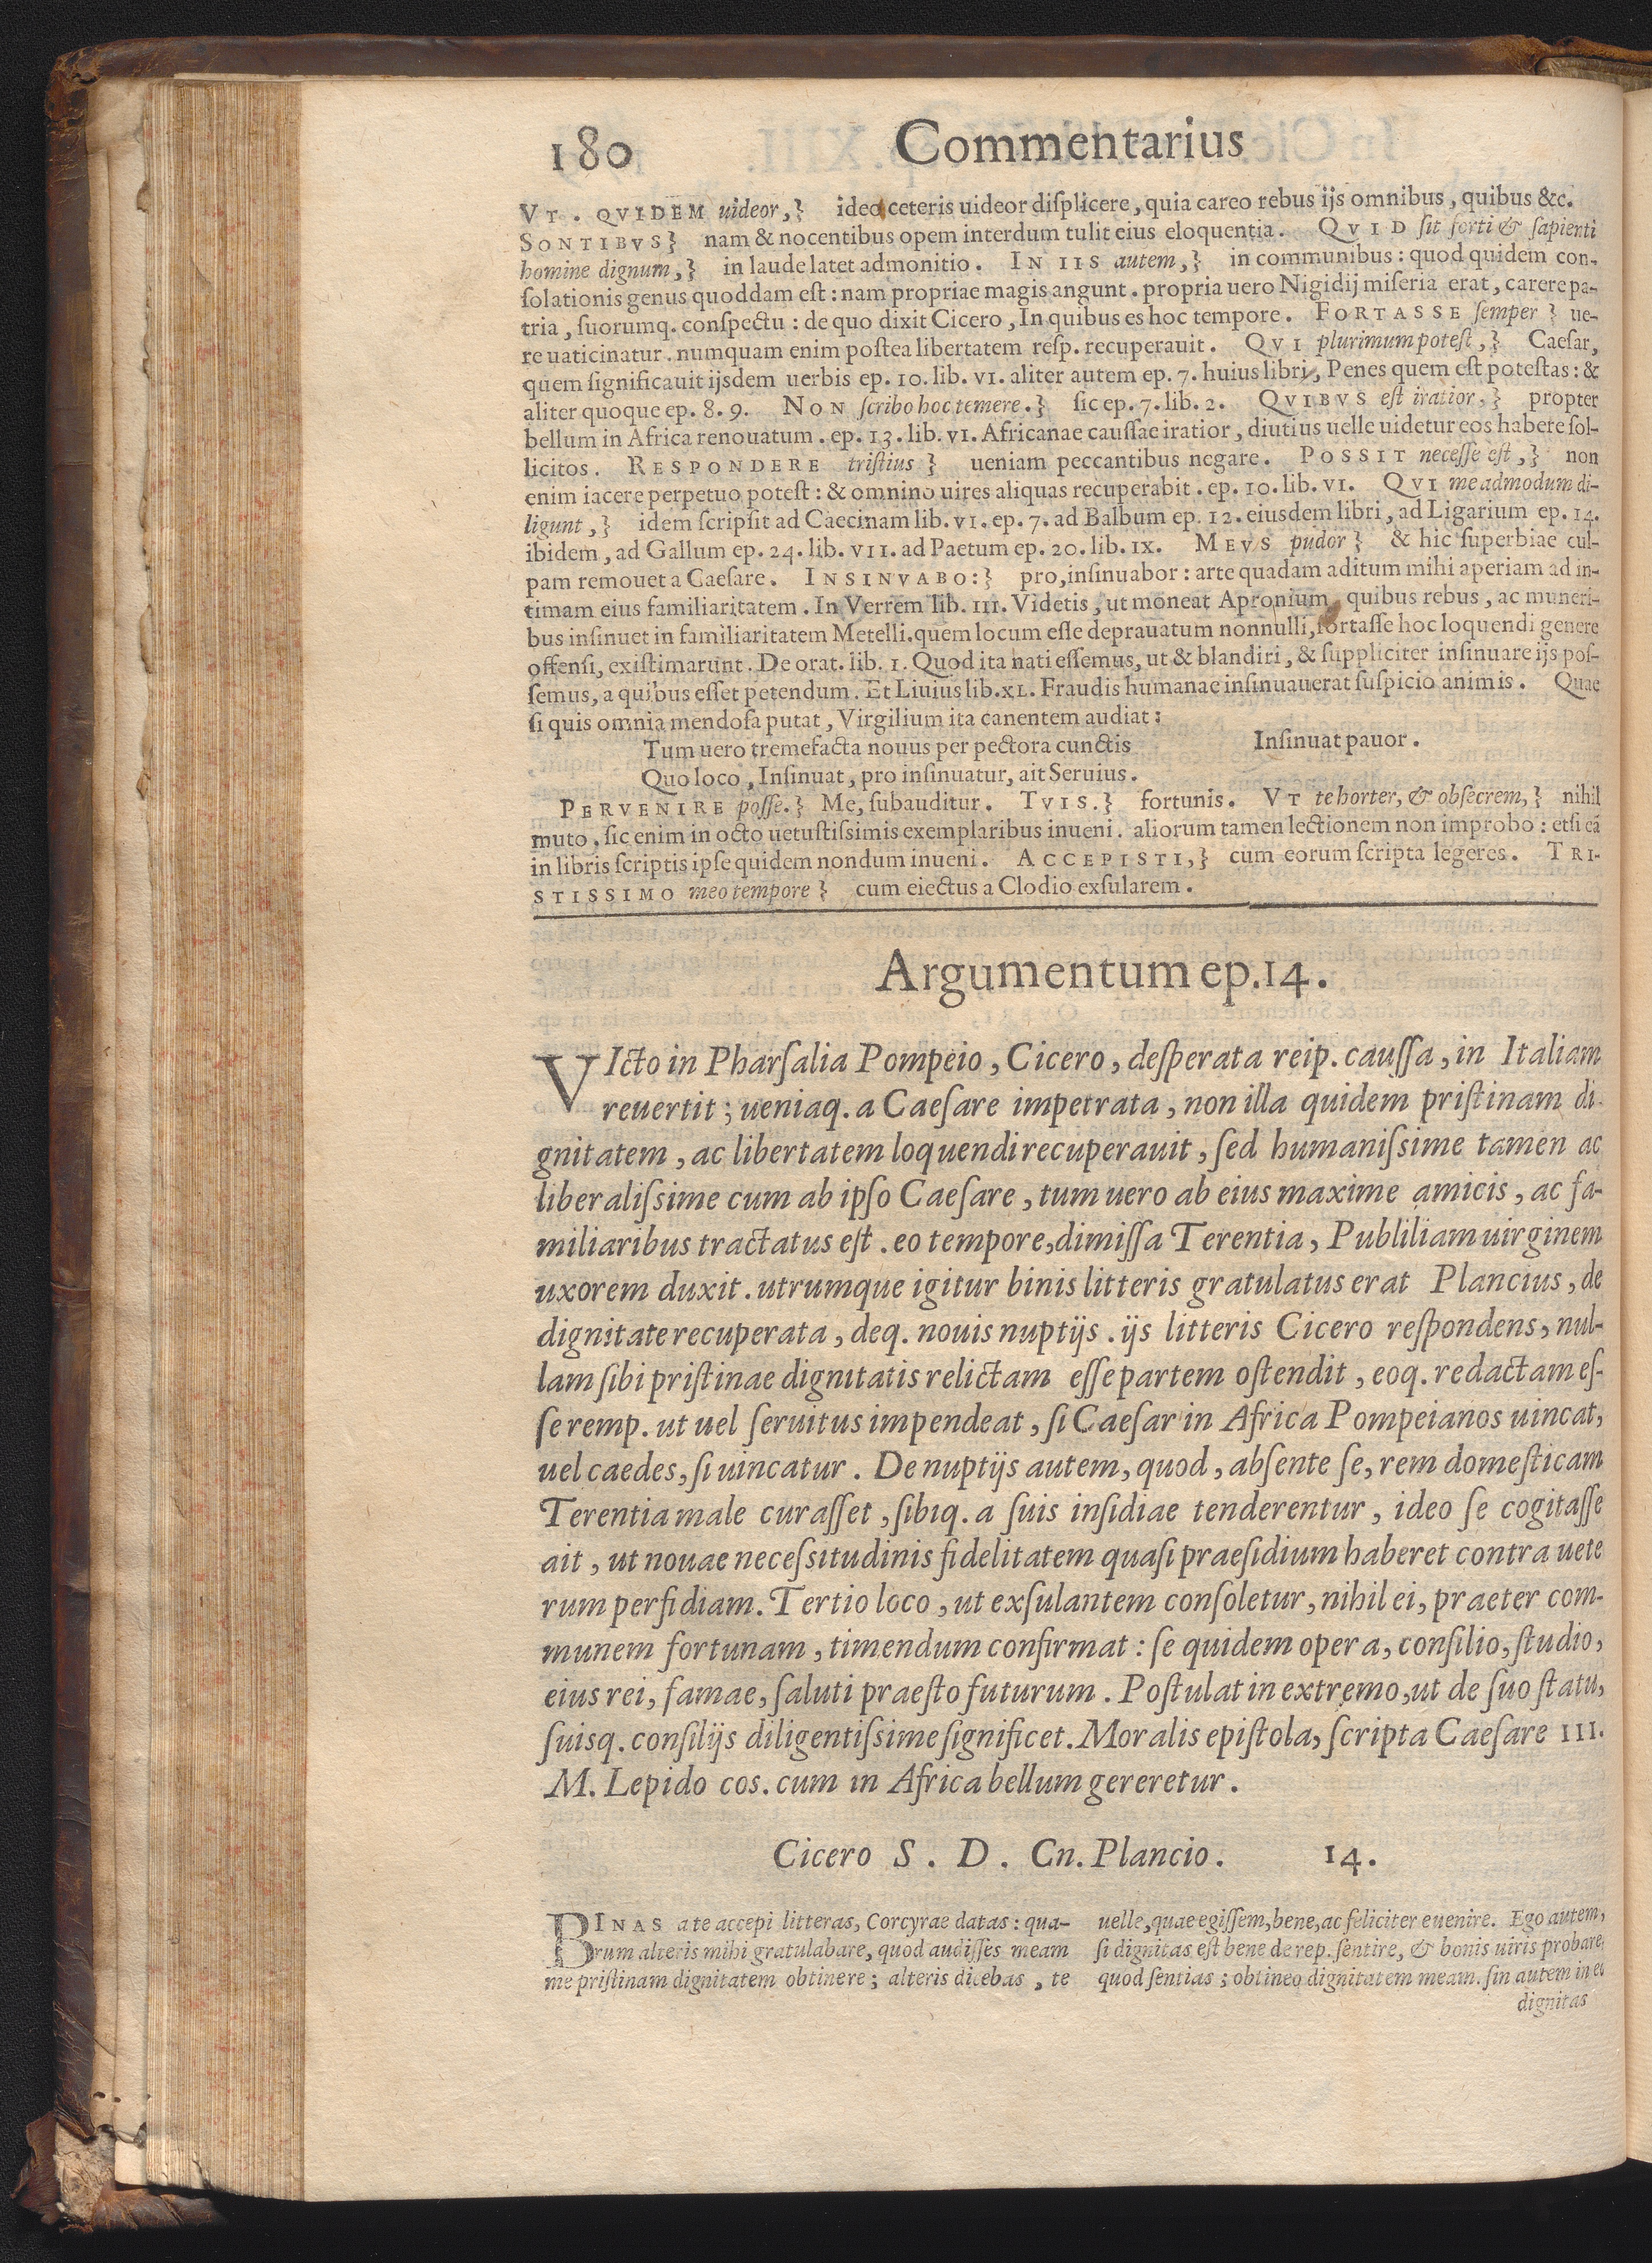 180 Commentarius
VT. QVIDEM uideor,} ideo ceteris uideor diſplicere, quia careo rebus ijs omnibus, quibus &c.
SONTIBVS} nam & nocentibus opem interdum tulit eius eloquentia. QVID ſit forti & ſapienti
homine dignum,} in laude latet admonitio. IN IIS autem,} in communibus: quod quidem con-
ſolationis genus quoddam eſt: nam propriae magis angunt. propria uero Nigidij miſeria erat, carere pa-
tria, ſuorumq. conſpectu: de quo dixit Cicero, In quibus es hoc tempore. FORTASSE ſemper} ue-
re uaticinatur. numquam enim poſtea libertatem reſp. recuperauit. QVI plurimum poteſt,} Caeſar,
quem ſignificauit ijsdem uerbis ep. 10. lib. VI. aliter autem ep. 7. huius libri, Penes quem eſt poteſtas: &
aliter quoque ep. 8. 9. NON ſcribo hoc temere.} ſic ep. 7. lib. 2. QVIBVS eſt iratior,} propter
bellum in Africa renouatum. ep. 13. lib. VI. Africanae cauſſae iratior, diutius uelle uidetur eos habere ſol-
licitos. RESPONDERE triſtius} ueniam peccantibus negare. POSSIT neceſſe eſt,} non
enim iacere perpetuo poteſt: & omnino uires aliquas recuperabit. ep. 10. lib. VI. QVI. me admodum di-
ligunt,} idem ſcripſit ad Caecinam lib. VI. ep. 7. ad Balbum ep. 12. eiusdem libri, ad Ligarium ep. 14.
ibidem, ad Gallum ep. 24. lib. VII. ad Paetum ep. 20. lib. IX. MEVS pudor} & hic ſuperbiae cul-
pam remouet a Caeſare. INSINVABO:} pro, inſinuabor: arte quadam aditum mihi aperiam ad in-
timam eius familiaritatem. In Verrem lib. III. Videtis, ut moneat Apronium, quibus rebus, ac muneri-
bus inſinuet in familiaritatem Metelli. quem locum eſſe deprauatum nonnulli, fortaſſe hoc loquendi genere
offenſi, exiſtimarunt. De orat. lib. 1. Quod ita nati eſſemus, ut & blandiri, & ſuppliciter inſinuare ijs poſ-
ſemus, a quibus eſſet petendum. Et Liuius lib. XL. Fraudis humanae inſinuauerat ſuſpicio animis. Quae
ſi quis omnia mendoſa putat, Virgilium ita canentem audiat:
Tum uero tremefacta nouus per pectora cunctis Inſinuat pauor.
Quo loco, Inſinuat, pro inſinuatur, ait Seruius.
PERVENIRE poſſe.} Me, ſubauditur. TVIS.} fortunis. VT te horter, & obſecrem,} nihil
muto. ſic enim in octo uetuſtiſsimis exemplaribus inueni. aliorum tamen lectionem non improbo: etſi eã
in libris ſcriptis ipſe quidem nondum inueni. ACCEPISTI,} cum eorum ſcripta legeres. TRI-
STISSIMO meo tempore} cum eiectus a Clodio exſularem.
Argumentum ep. 14.
VIcto in Pharſalia Pompeio, Cicero, deſperata reip. cauſſa, in Italiam
reuertit; ueniaq. a Caeſare impetrata, non illa quidem priſtinam di-
gnitatem, ac libertatem loquendi recuperauit, ſed humaniſsime tamen ac
liberaliſsime cum ab ipſo Caeſare, tum uero ab eius maxime amicis, ac fa-
miliaribus tractatus eſt. eo tempore, dimiſſa Terentia, Publiliam uirginem
uxorem duxit. utrumque igitur binis litteris gratulatus erat Plancius, de
dignitate recuperata, deq. nouis nuptijs. ijs litteris Cicero reſpondens, nul-
lam ſibi priſtinae dignitatis relictam eſſe partem oſtendit, eoq. redactam eſ-
ſe remp. ut uel ſeruitus impendeat, ſi Caeſar in Africa Pompeianos uincat,
uel caedes, ſi uincatur. De nuptijs autem, quod, abſente ſe, rem domeſticam
Terentia male curaſſet, ſibiq. a ſuis inſidiae tenderentur, ideo ſe cogitaſſe
ait, ut nouae neceſsitudinis fidelitatem quaſi praeſidium haberet contra uete
rum perfidiam. Tertio loco, ut exſulantem conſoletur, nihil ei, praeter com-
munem fortunam, timendum confirmat: ſe quidem opera, conſilio, ſtudio,
eius rei, famae, ſaluti praeſto futurum. Poſtulat in extremo, ut de ſuo ſtatu,
ſuisq. conſilijs diligentiſsime ſignificet. Moralis epiſtola, ſcripta Caeſare III.
M. Lepido cos. cum in Africa bellum gereretur.
Cicero S. D. Cn. Plancio. 14.
BINAS a te accepi litteras, Corcyrae datas: qua-
rum alteris mihi gratulabare, quod audiſſes meam
me priſtinam dignitatem obtinere; alteris dicebas, te
uelle, quae egiſſem, bene, ac feliciter euenire. Ego autem,
ſi dignitas eſt bene de rep. ſentire, & bonis uiris probare,
quod ſentias; obtineo dignitatem meam. ſin autem in eo
dignitas